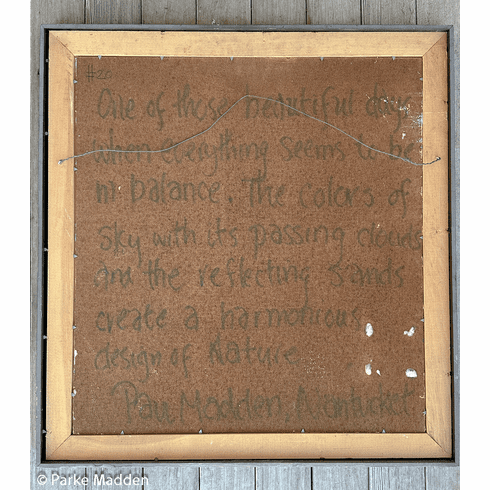 #20
One of those beautiful days
when everything seems to be
in balance. The colors of
sky with its passing clouds
and the reflecting sands
create a harmonious
design of Nature
Paul Madden, Nantucket
© Parke Madden